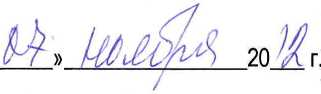 07» ноября 2012 г.